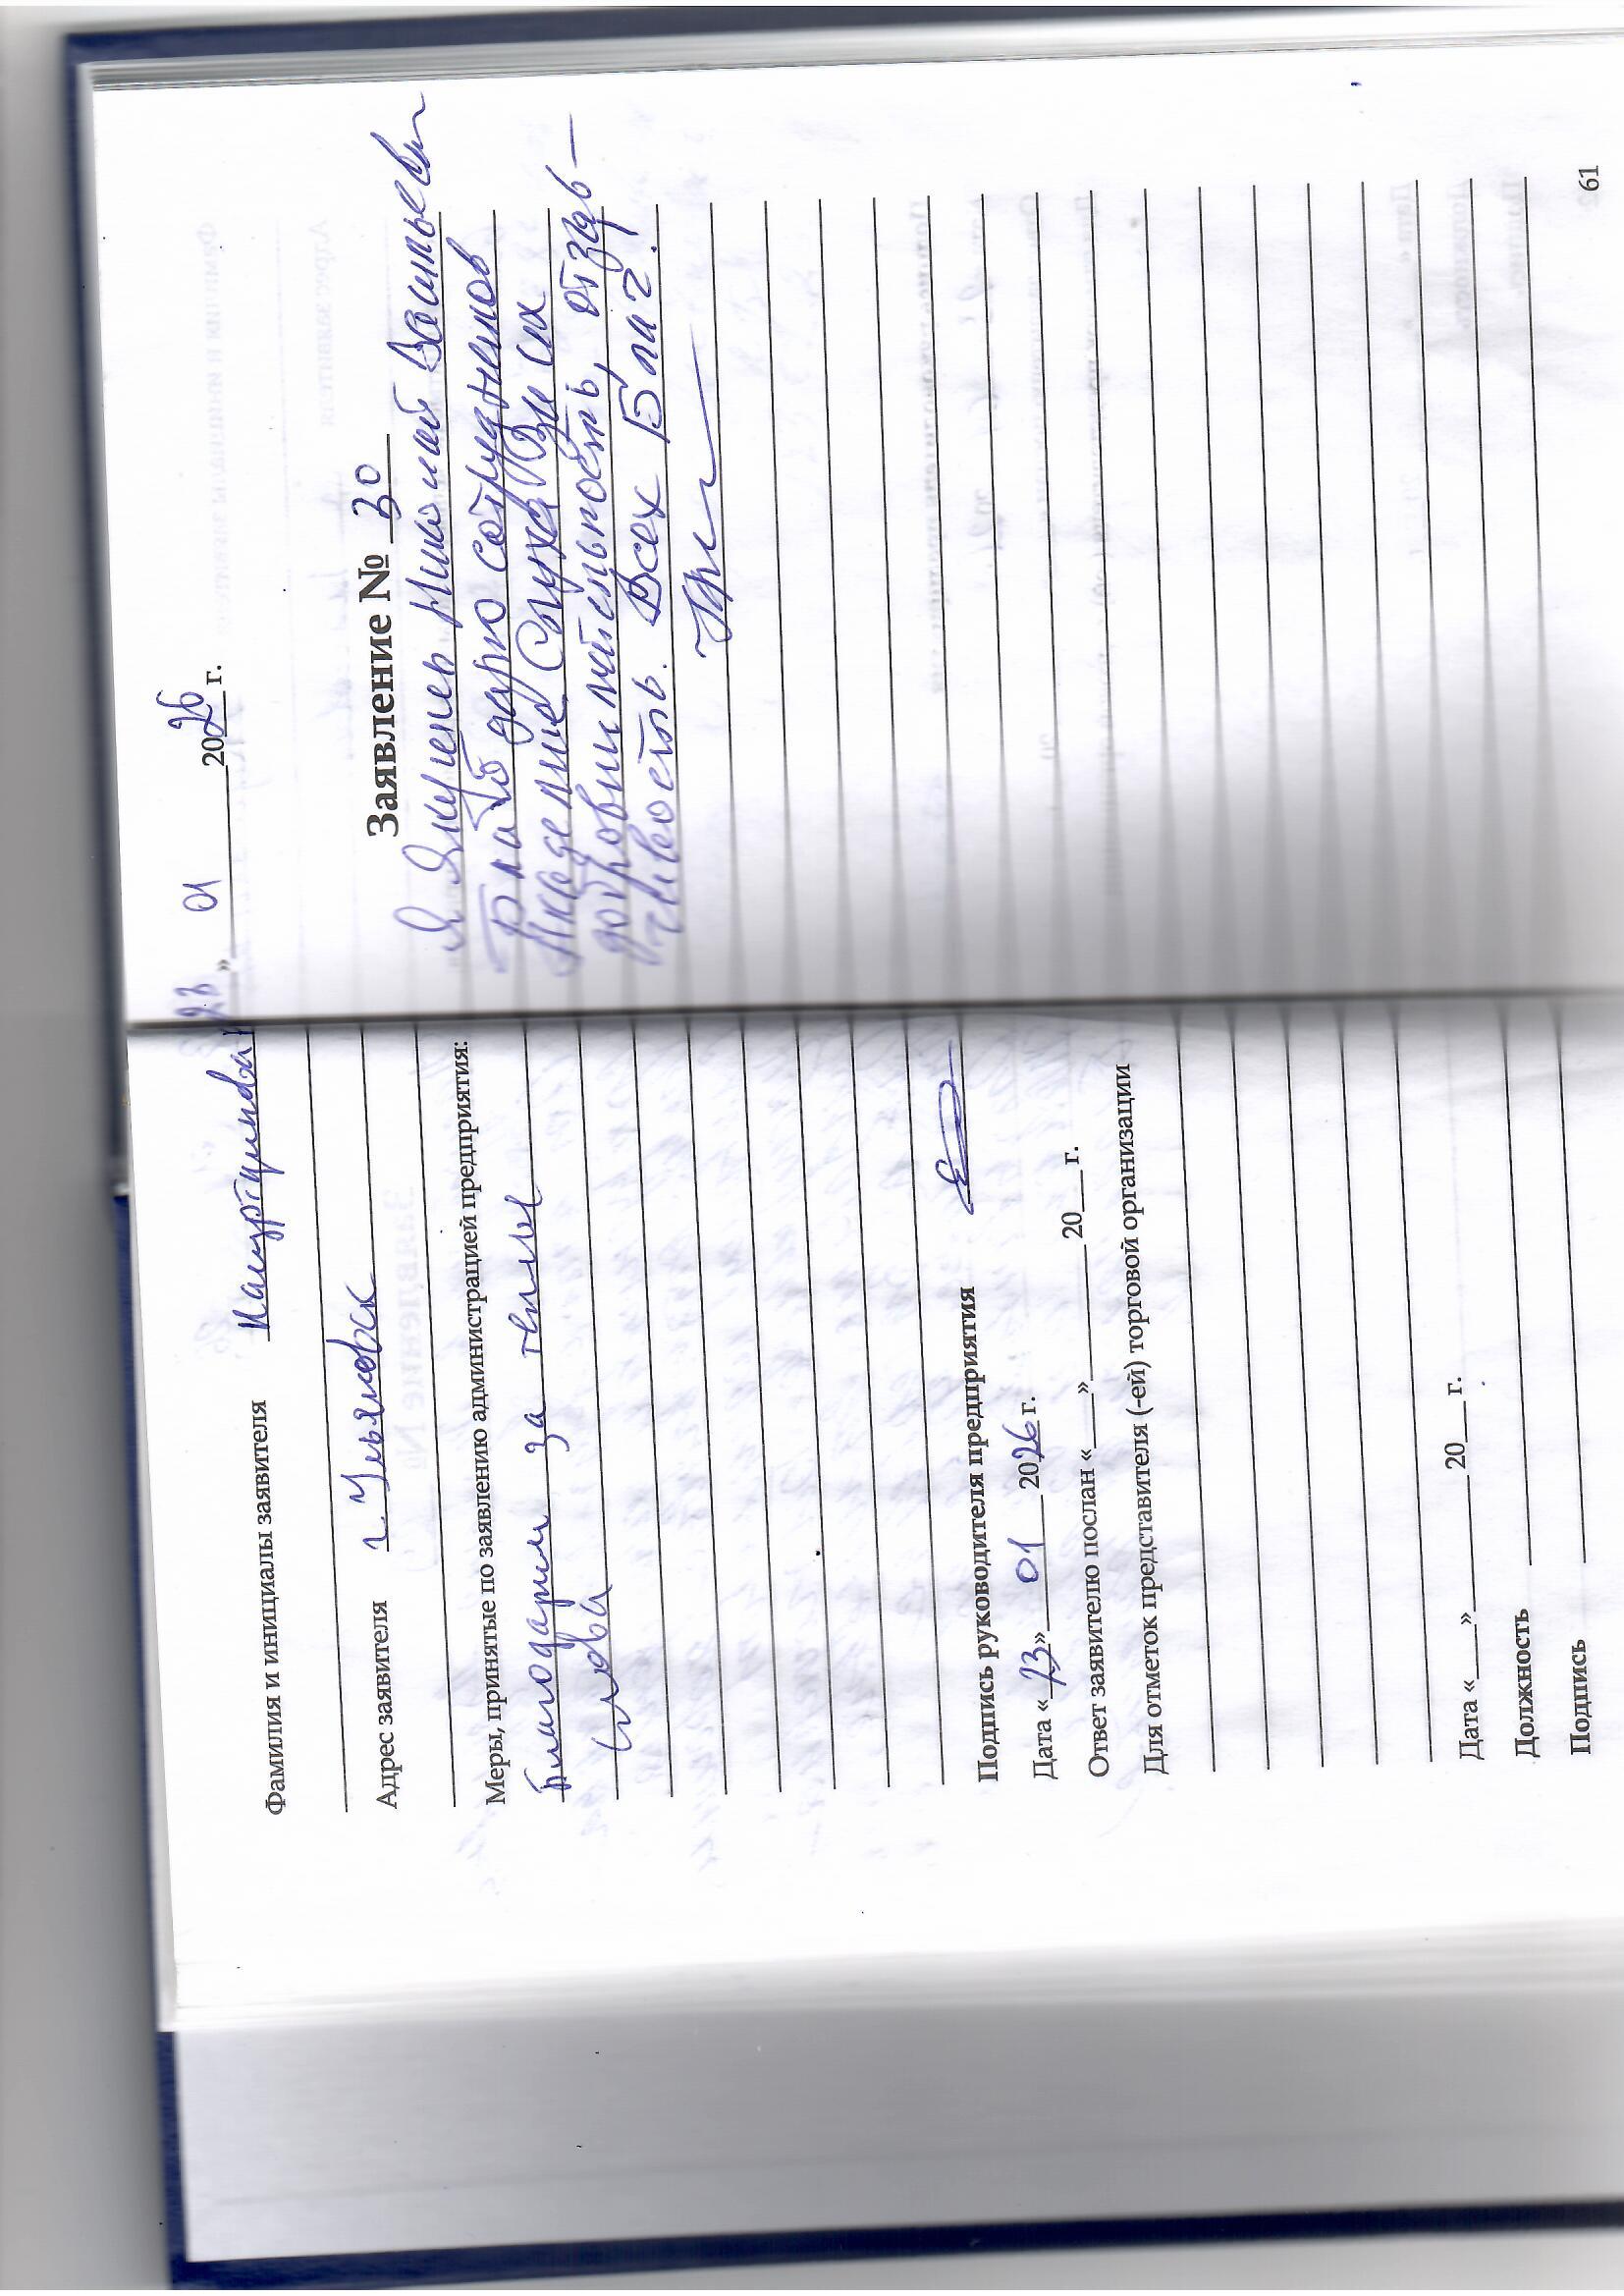 Фамилия и инициалы заявителя
Адрес заявителя г. Ульяновск
Меры, принятые по заявлению администрацией предприятия:
Благодарим за теплые
слова
Подпись руководителя предприятия
Дата «23» 01 2026 г.
Ответ заявителю послан «___»________20___г.
Для отметок представителя (-ей) торговой организации
Дата «___»________20___г.
Должность
Подпись
23» 01 2026 г.
Заявление № 30
Я Николай Васильевич
Благодарю сотрудников
Академие Слуха
за
внимательность, отзыв-
чивость. Всех Благ.
61